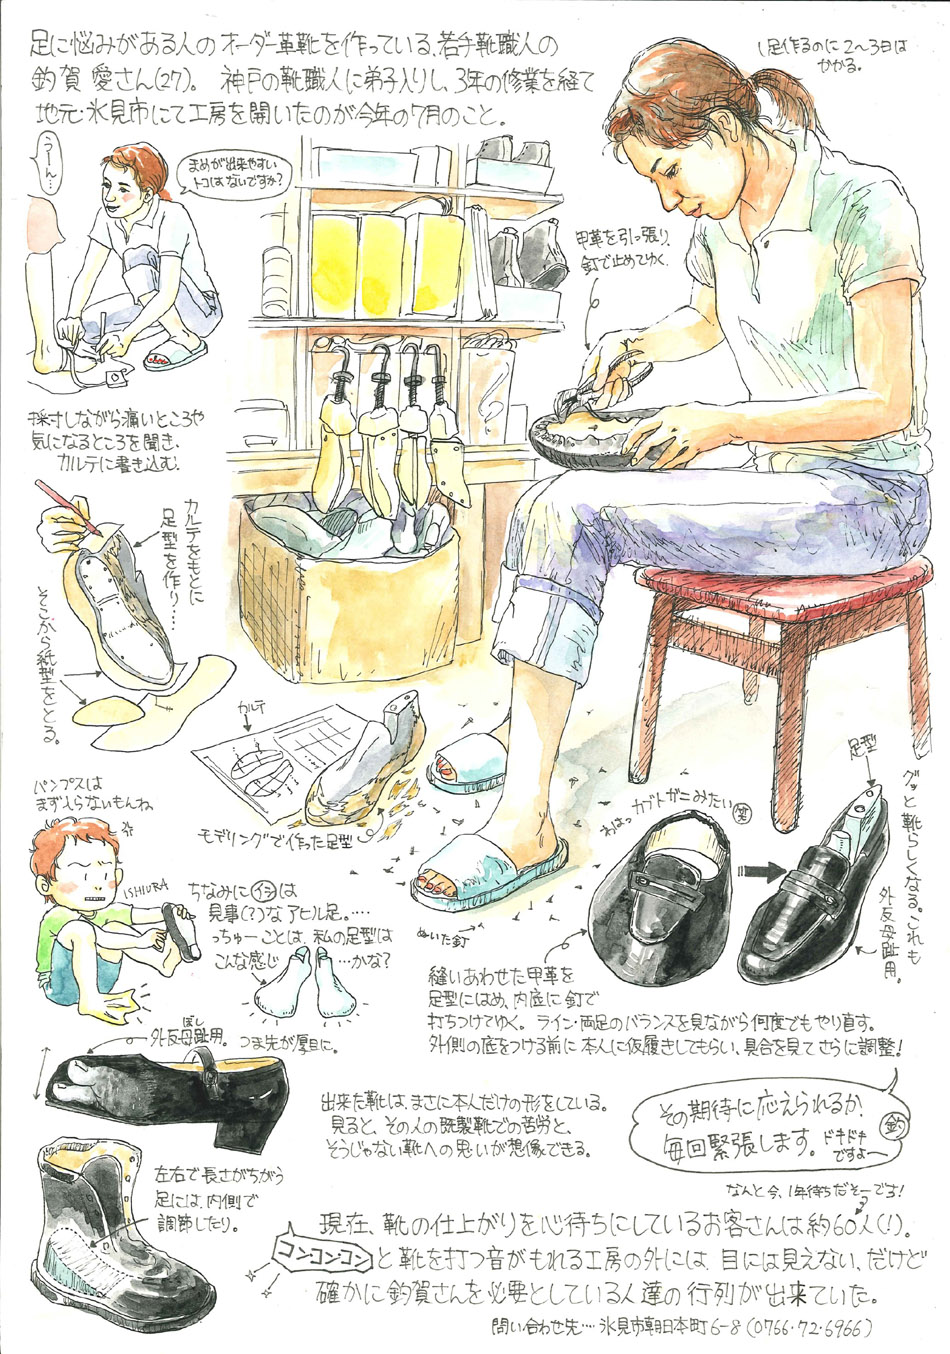 足に悩みがある人のオーダー革靴を作っている、若手靴職人の
釣賀 愛さん(27)。 神戸の靴職人に弟子入りし、3年の修業を経て
地元・氷見市にて工房を開いたのが今年の7月のこと。
1足作るのに2〜3日は
かかる。
うーん…
まめが出来やすい
トコはないですか?
甲革を引っ張り、
釘で止めてゆく。
採寸しながら痛いところや
気になるところを聞き、
カルテに書き込む。
カルテをもとに
足型を作り…
そこから紙型をとる。
カルテ
モデリングで作った足型
パンプスは
まず入らないもんね
ISHIURA
ちなみに イシ は
見事(?)な アヒル足。…
っちゅーことは、私の足型は
こんな感じ …かな?
つま先が厚目に。
ぬいた釘
カブトガニみたい 笑
わはっ
足型
グッと靴らしくなる。これも
外反母趾用。
縫いあわせた甲革を
足型にはめ、内底に釘で
打ちつけてゆく。 ライン・両足のバランスを見ながら何度でもやり直す。
外側の底をつける前に本人に仮履きしてもらい、具合を見てさらに調整!
ぼし
外反母趾用。
出来た靴は、まさに本人だけの形をしている。
見ると、その人の既製靴での苦労と、
そうじゃない靴への思いが想像できる。
その期待に応えられるか、
毎回緊張します。 ドキドキ
ですよー
釣
左右で長さがちがう
足には、内側で
調節したり。
なんと今、1年待ちだそーです!
現在、靴の仕上がりを心待ちにしているお客さんは約60人(!)。
コンコンコン と靴を打つ音がもれる工房の外には、目には見えない、だけど
確かに釣賀さんを必要としている人達の行列が出来ていた。
問い合わせ先… 氷見市朝日本町6-8 (0766・72・6966)